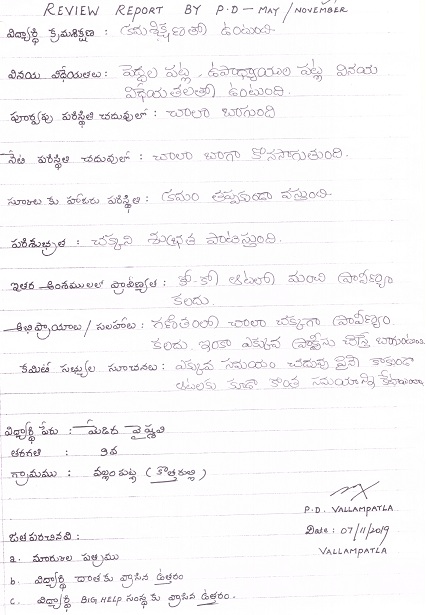 REVIEW REPORT BY P.D - MAY / NOVEMBER
విద్యార్థి క్రమశిక్షణ : క్రమశిక్షణతో ఉంటుంది.
వినయ విధేయతలు : పెద్దల పట్ల, ఉపాధ్యాయుల పట్ల వినయ
విధేయతలతో ఉంటుంది.
పూర్వపు పరిస్థితి చదువులో : చాలా బాగుంది
నేటి పరిస్థితి చదువులో : చాలా బాగా కొనసాగుతుంది.
స్కూలు కు హాజరు పరిస్థితి : క్రమం తప్పకుండా వస్తుంది
పరిశుభ్రత : చక్కని శుభ్రత పాటిస్తుంది.
ఇతర అంశములలో ప్రావీణ్యత : ఖో-ఖో ఆటలో మంచి ప్రావీణ్యం
కలదు.
అభిప్రాయాలు / సలహాలు : గణితంలో చాలా చక్కగా ప్రావీణ్యం
కలదు. ఇంకా ఎక్కువ ప్రాక్టీసు చేస్తే బాగుంటుంది
కమిటీ సభ్యుల సూచనలు : ఎక్కువ సమయం చదువు పైనే కాకుండా
ఆటలకు కూడా కొంత సమయాన్ని కేటాయించాలి
విద్యార్థి పేరు : మేడిశ వైష్ణవి
తరగతి : 9వ
గ్రామము : వల్లంపట్ల (కొత్తపల్లి)
P.D. VALLAMPATLA
Date : 07/11/2019
VALLAMPATLA
జతపరచినవి :
a. మార్కుల పత్రము
b. విద్యార్థి దాతకు వ్రాసిన ఉత్తరం
c. విద్యార్థి BIG HELP సంస్థకు వ్రాసిన ఉత్తరం.